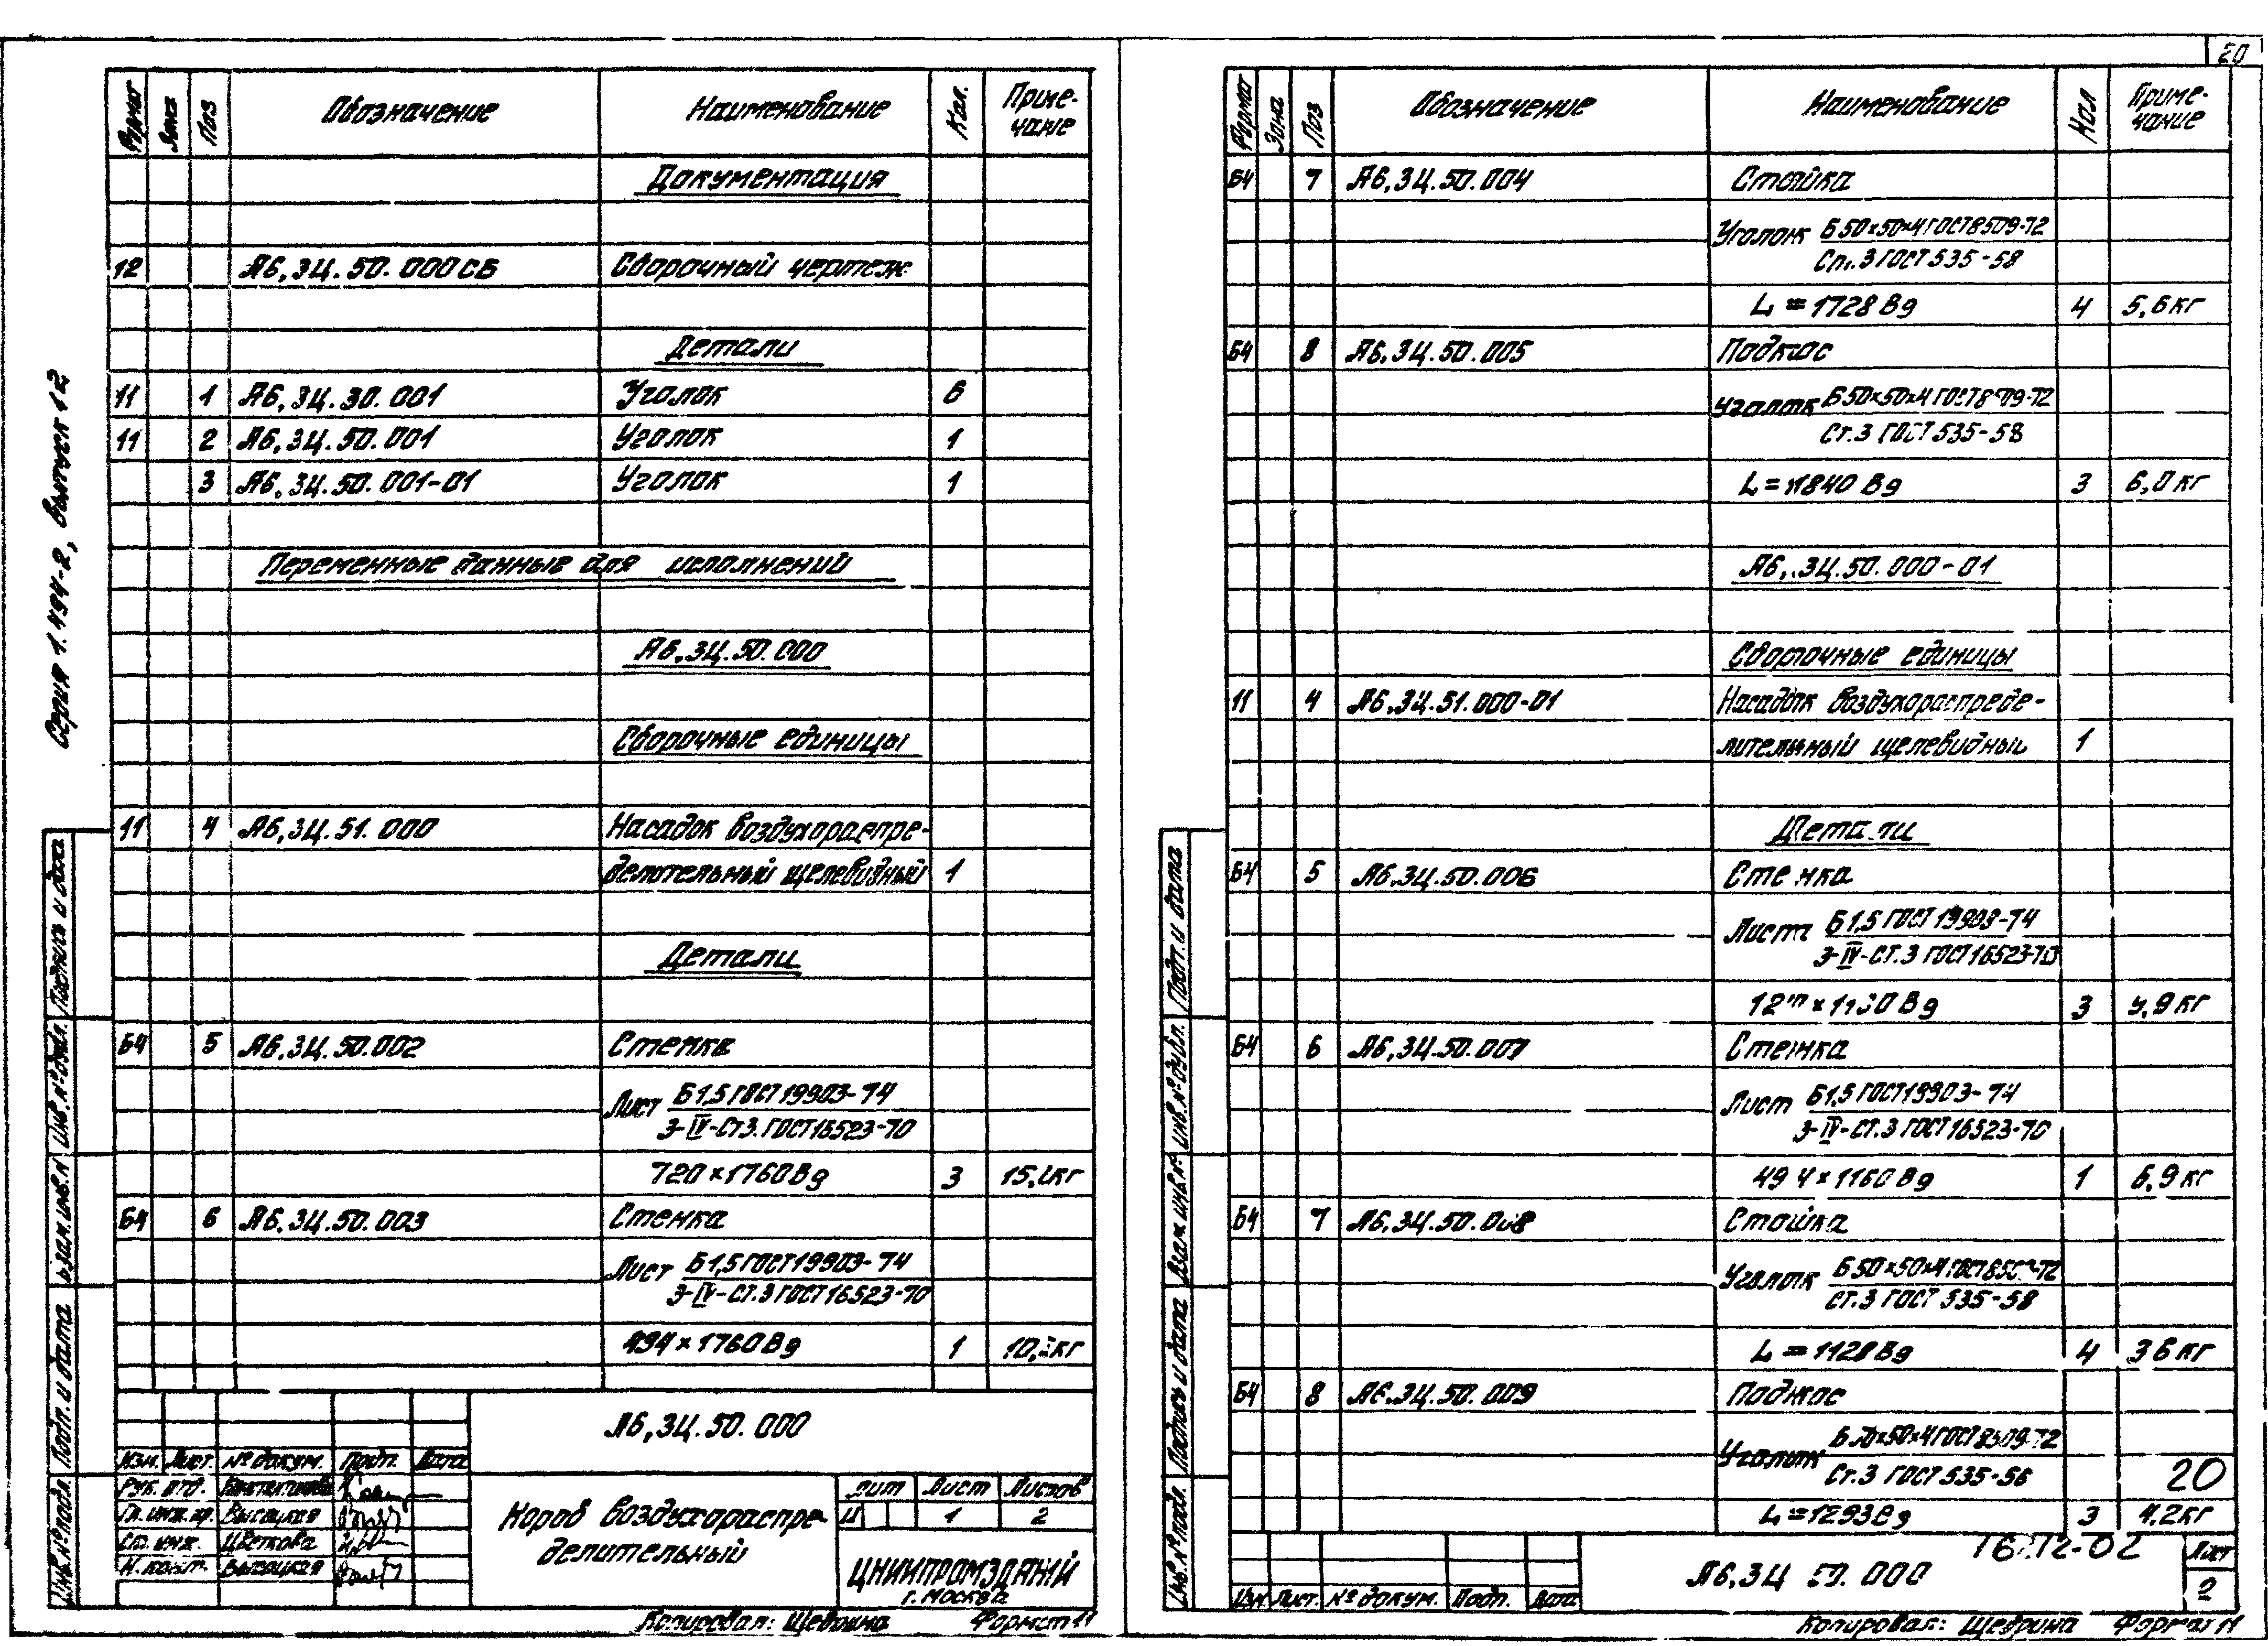 20
Серия 1.494-2, Выпуск 12
Формат Зона Поз Обозначение Наименование Кол. Приме-
чание
Документация
12 А6,3Ц.50.000СБ Сборочный чертеж
Детали
11 1 А6,3Ц.30.001 Уголок 6
11 2 А6,3Ц.50.001 Уголок 1
3 А6,3Ц.50.001-01 Уголок 1
Переменные данные для исполнений
А6,3Ц.50.000
Сборочные единицы
11 4 А6,3Ц.51.000 Насадок воздухораспре-
делительный щелевидный 1
Детали
Б4 5 А6,3Ц.50.002 Стенка
Лист Б1,5 ГОСТ 19903-74
3-IV-Ст3.ГОСТ16523-70
720×1760Вg 3 кг
Б4 6 А6,3Ц.50.003 Стенка
Лист Б1,5 ГОСТ19903-74
3-IV-СТ.3 ГОСТ16523-70
494×1760Вg 1 кг
А6,3Ц.50.000
Изм. Лист. № докум. Подп. Дата
Рук. отд.
Гл. инж. пр. Высоцкая
Ст. инж. Цветкова
Н. конт. Высоцкая
Короб воздухораспре-
делительный
Лит Лист Листов
И 1 2
ЦНИИПРОМЗДАНИЙ
г. Москва
Копировал: Щедрина Формат 11
Подпись и дата
Инв.№ дубл.
Взам.инв.№
Подп. и дата
Инв.№ подл.
Формат Зона Поз Обозначение Наименование Кол Приме-
чание
Б4 7 А6,3Ц.50.004 Стойка
Уголок Б 50×50×4 ГОСТ8509-72
Ст.3 ГОСТ 535-58
L=1728Вg 4 5,6кг
Б4 8 А6,3Ц.50.005 Подкос
Уголок Б50×50×4 ГОСТ8509-72
Ст.3 ГОСТ 535-58
L=1840Вg 3 6,0кг
А6,3Ц.50.000-01
Сборочные единицы
11 4 А6,3Ц.51.000-01 Насадок воздухораспреде-
лительный щелевидный 1
Детали
Б4 5 А6,3Ц.50.006 Стенка
Лист Б1,5 ГОСТ 19903-74
3-IV-СТ.3 ГОСТ16523-70
3 9,9кг
Б4 6 А6,3Ц.50.007 Стенка
Лист Б1,5 ГОСТ19903-74
3-IV-СТ.3 ГОСТ16523-70
494×1160Вg 1 6,9кг
Б4 7 А6,3Ц.50.008 Стойка
Уголок Б 50×50×4 ГОСТ8509-72
Ст.3 ГОСТ 535-58
L=1128Вg 4 3 6 кг
Б4 8 А6.3Ц.50.009 Подкос
Уголок Б 50×50×4 ГОСТ8509-72
Ст.3 ГОСТ 535-58
L=1293Вg 3 4,2кг
20
А6,3Ц 50.000
Лист
2
Изм Лист. № докум. Подп. Дата
Копировал: Щедрина Формат 11
Подп. и дата
Инв.№ дубл.
Взам инв.№
Подпись и дата
Инв.№ подл.